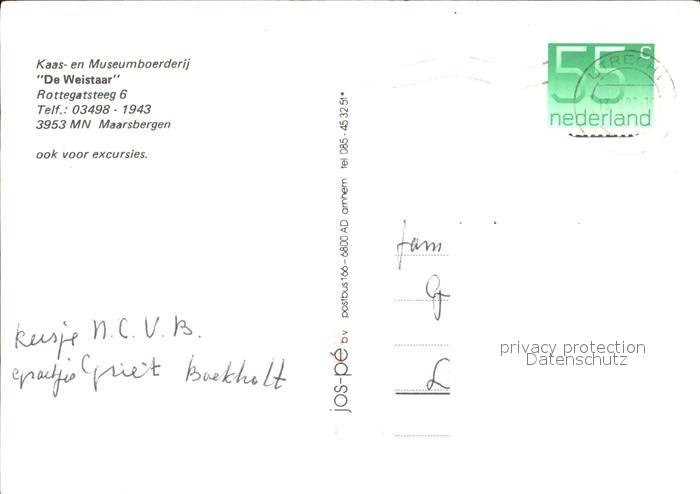 Kaas- en Museumboerderij
"De Weistaar"
Rottegatsteeg 6
Telf.: 03498 - 1943
3953 MN Maarsbergen
ook voor excursies.
jos-pé bv postbus 166 - 6800 AD arnhem tel 085-45 32 51*
55 c
nederland
UTRECHT
fam
G
L
reisje N.C.V.B.
groetjes Griet Boekholt
privacy protection
Datenschutz